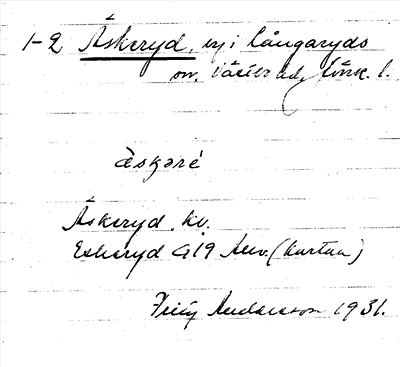 1-2 Åskeryd, by i Långaryds
sn, Västbo hd, Jönk. l.
àskəré
Åskeryd kv.
Eskeryd G19 Anv. (kartan)
Andersson 1931.